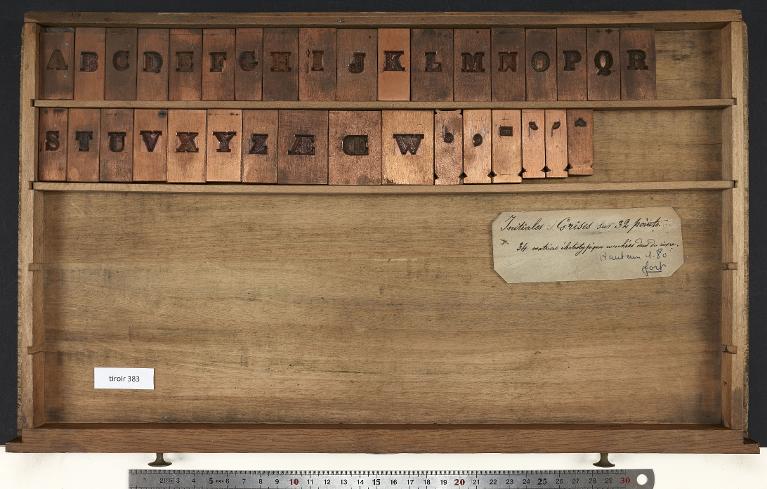 A B C D E F G H I J K L M N O P Q R
S T U V X Y Z Æ Œ W
Initiales Grises sur 32 points.
34 matrices
hauteur 1.80
fort
tiroir 383
1 2 3 4 5 6 7 8 9 10 11 12 13 14 15 16 17 18 19 20 21 22 23 24 25 26 27 28 29 30